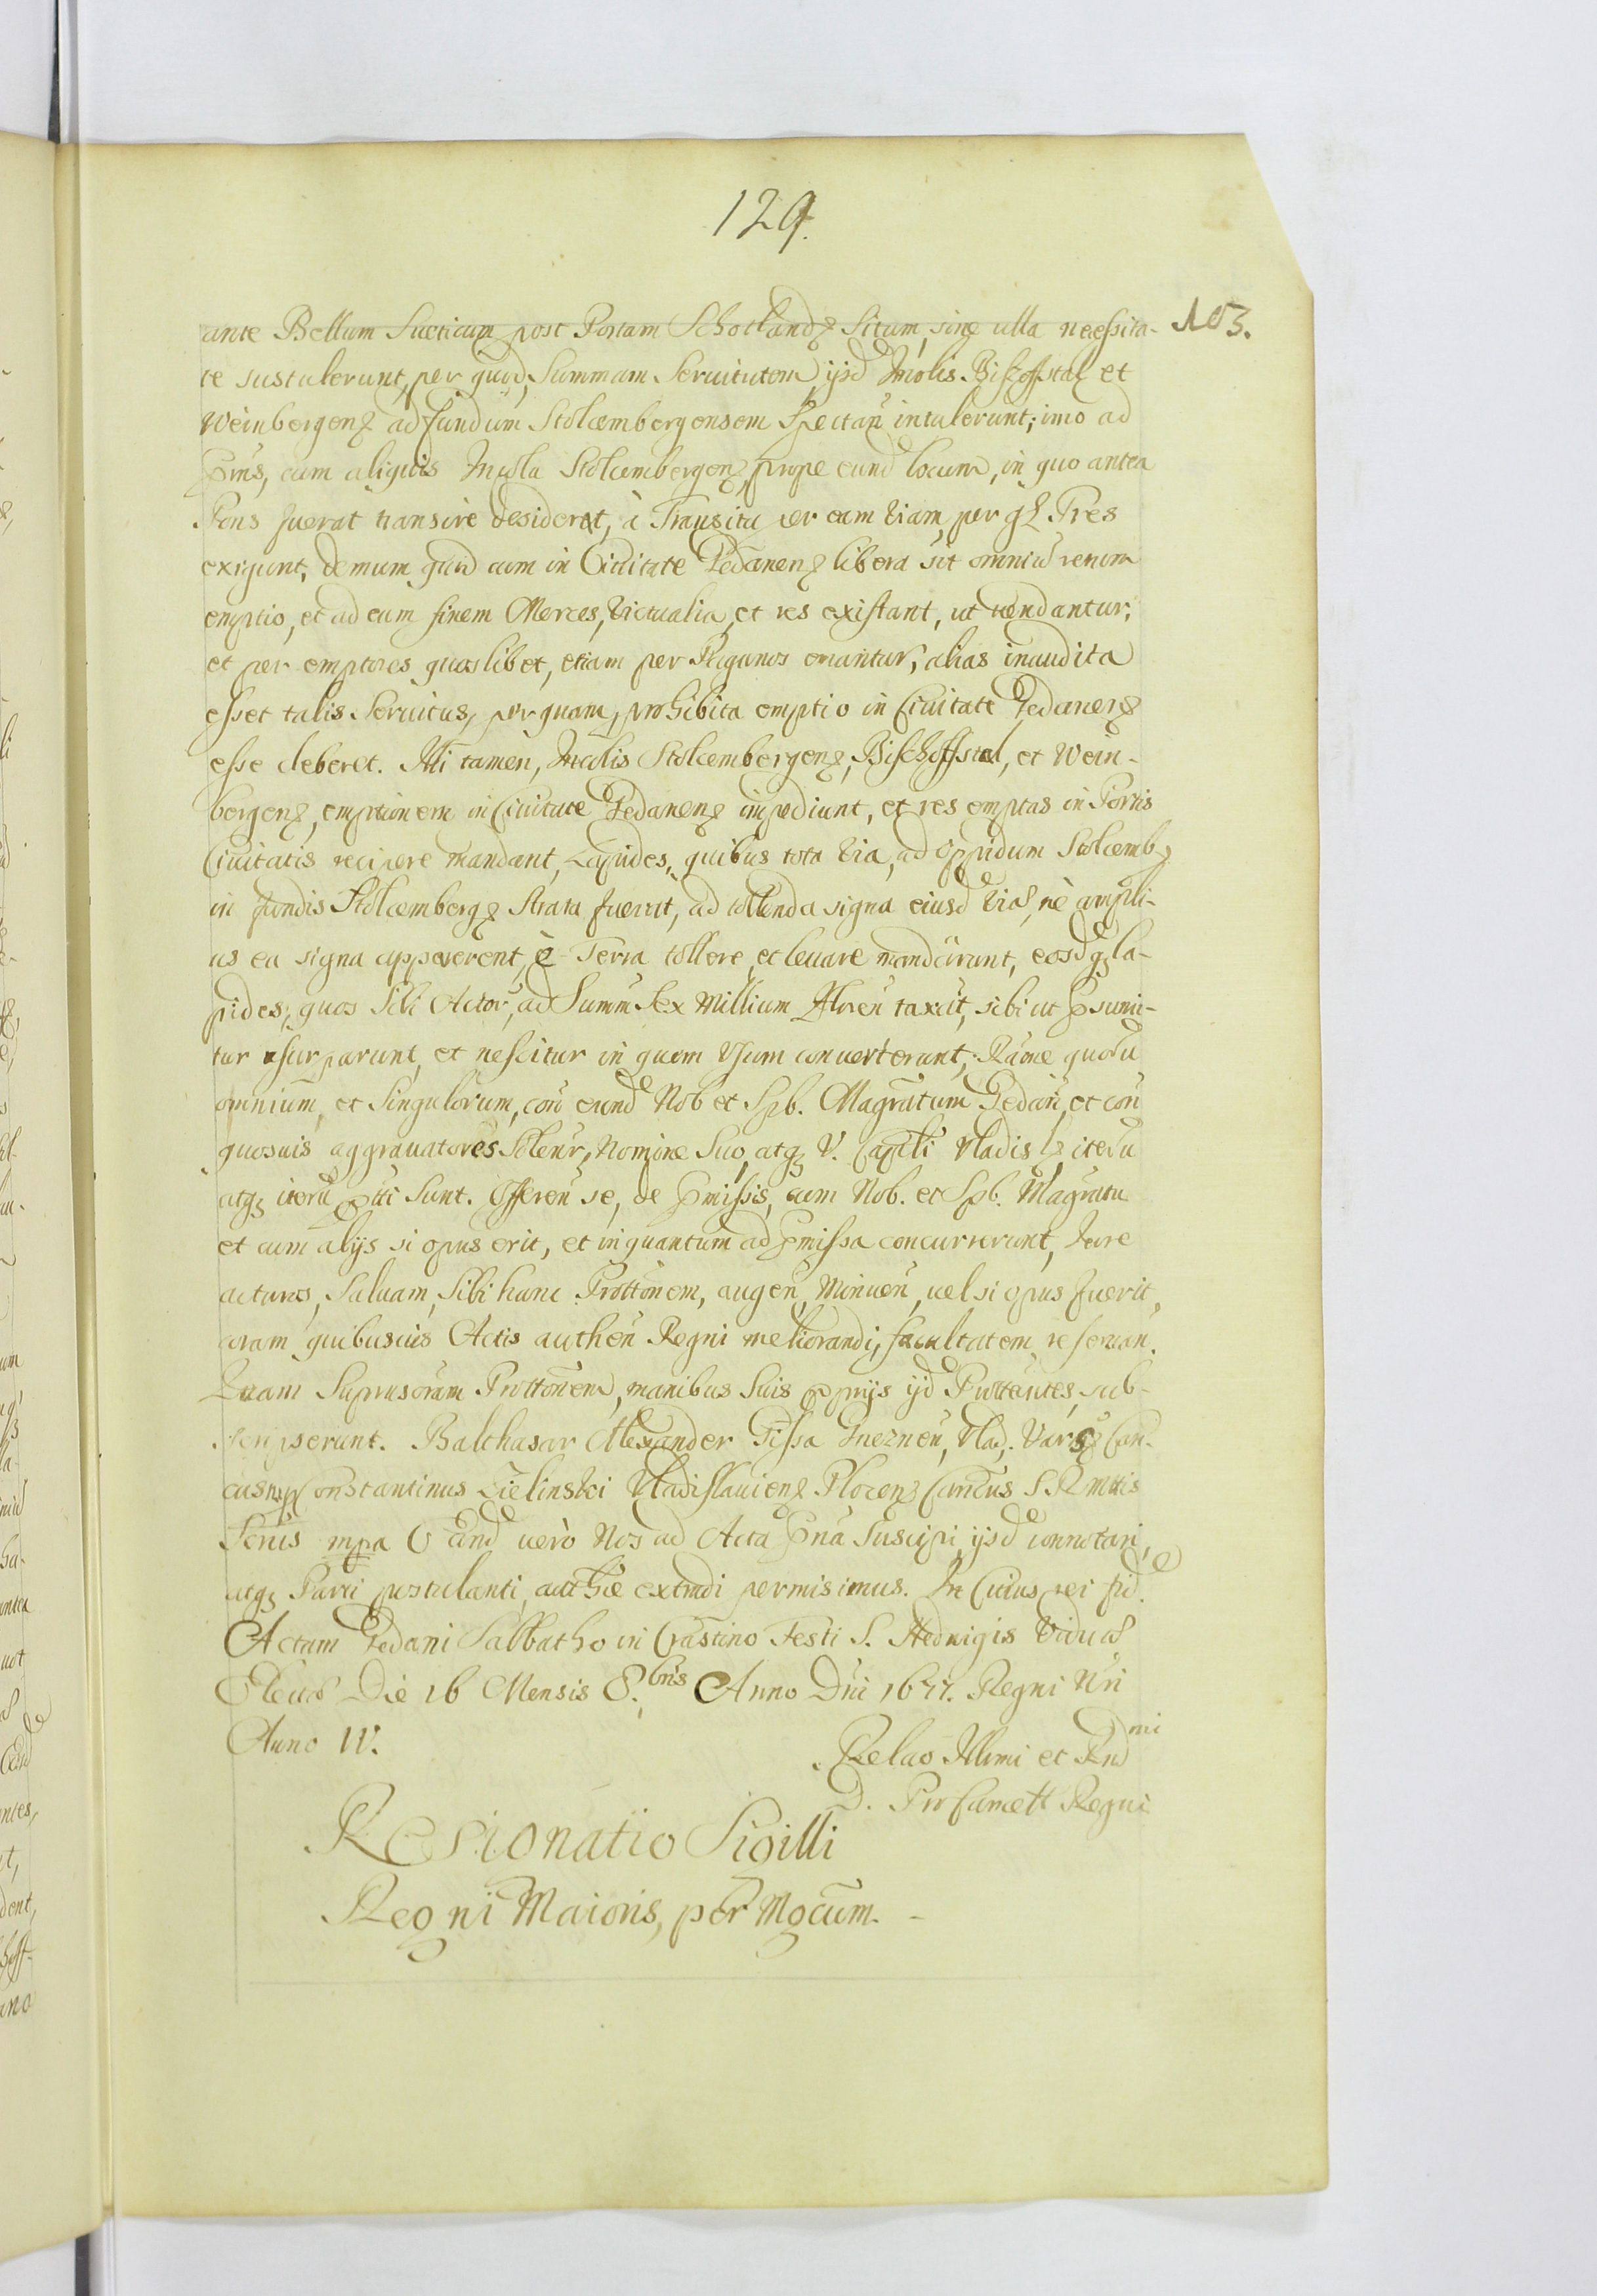 129.
103.
ante Bellum Sueticum post Portam Schotlandz Situm, sine ulla necessita-
te sustulerunt, per quod, Summam Seruitutem ijsd Incolis Bischoffstal et
Weinbergenz ad fundum Stolcembergensem Spectañ intulerunt; imo ad
p̃ns, cum aliquis Incola Stolcembergenz, prope eund locum, in quo antea
Pons fuerat transire desiderat, à Transitu per eam Viam, per gl. Tres
exigunt, demum quod cum in Ciuitate Gedanenz libera sit omniu rerum
emptio, et ad eum finem Merces, Victualia, et res existant, ut uendantur,
et per emptores quoslibet, etiam per Paganos emantur, alias inaudita
esset talis Seruitus, per quam, prohibita emptio in Ciuitate Gedanenz
esse deberet. Illi tamen, Incolis Stolcembergenz, Bischoffstal, et Wein-
bergenz, emptionem in Ciuitate Gedanenz impediunt, et res emptas in Portis
Ciuitatis recipere mandant, Lapides, quibus tota Via, ad Oppidum Stolcemb,
in fundis Stolcembergz Strata fuerat, ad tollenda signa eiusd Viæ, nè ampli-
us ea signa apparerent, è Terra tollere, et leuare mandarunt, eosdq la-
pides, quos Sibi Actor, ad Summ Sex Millium Floreñ taxat, sibi ut p̃sumi-
tur usurparunt, et nescitur in quem Usum conuerterunt; Raõne quoru
omnium, et Singulorum, coñ eund Nob et Spb. Magr̃atum Gedañ, et coñ
quosuis aggrauatores Soleñr, Nomine Suo, atq V. Capĩtli Vladislz iteru
atq iteru p̃tti Sunt. Offereñ se, de p̃missis, cum Nob. et Spb. Magr̃atu
et cum alijs si opus erit, et inquantum ad p̃missa concurrerunt, Jure
acturos, Saluam, Sibi hanc Prottõnem, augeñ, Minueñ, uel si opus fuerit,
coram quibusuis Actis autheñ Regni meliorandi, facultatem reseruañ.
Quam Suprascram Prottõnem, manibus Suis pprijs ijd Prottantes, sub-
scripserunt. Balthasar Alexander Gissa Gnezneñ, Vlad. Varsz Can-
cus mpp Constantinus Zielinski Vladislauienz Plocenz Canc̃us S R Mttis
Scr̃ius mpa Eand uerò Nos ad Acta p̃ña Suscipi ijsd connotari,
atq Parti postulanti, autheẽ extradi permisimus. In Cuius rei fid.
Actum Gedani Sabbatho in Crastino Festi S. Hedwigis Viduæ
Electæ Die 16 Mensis 8.bris Anno Dñi 1677. Regni Ñri
Anno IV.
Relao Illmi et Rndmi
D. ProCancell Regni
Resignatio Sigilli
Regni Maioris, per Mgcum.